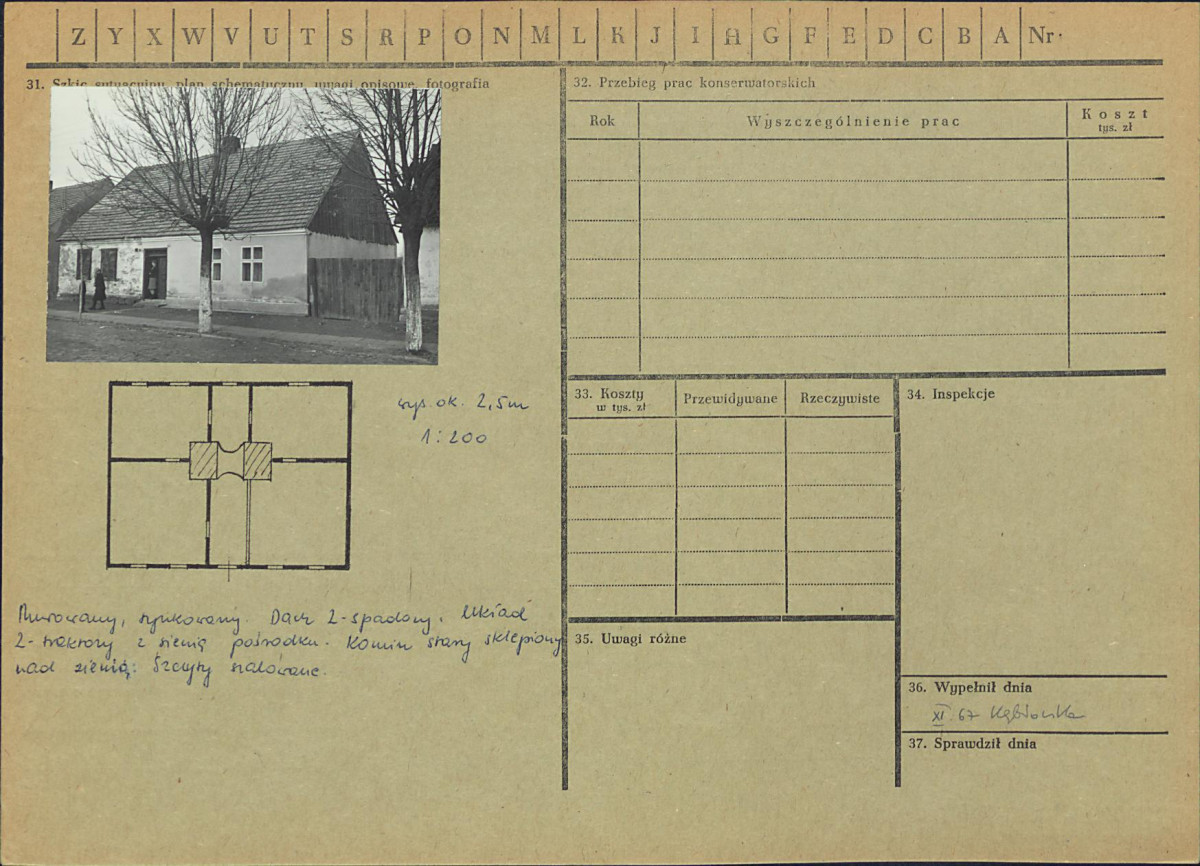 Z Y X W V U T S R P O N M L K J I H G F E D C B A Nr.
31. Szkic sytuacyjny, plan schematyczny, uwagi opisowe, fotografia
wys. ok. 2,5m
1:200
Murowany, tynkowany. Dach 2-spadowy. Układ
2-traktowy z sienią pośrodku. Komin stary sklepiony
nad sienią. Szczyty szalowane.
32. Przebieg prac konserwatorskich
Rok
Wyszczególnienie prac
Koszt
tys. zł
33. Koszty
w tys. zł
Przewidywane
Rzeczywiste
34. Inspekcje
35. Uwagi różne
36. Wypełnił dnia
XI. 67
37. Sprawdził dnia